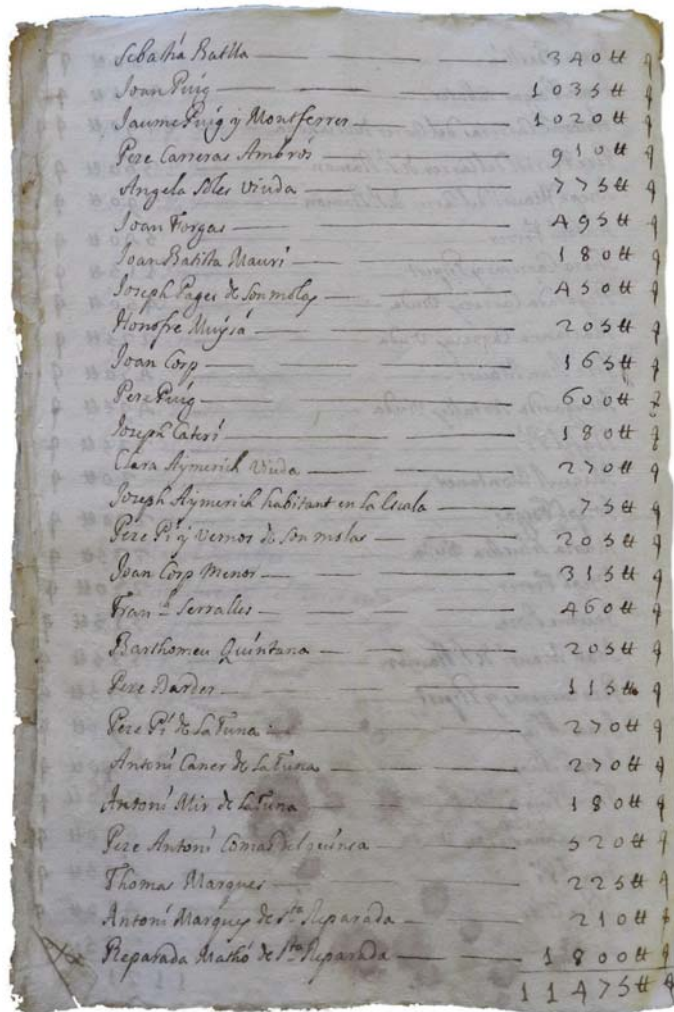 Sebastiá Batlla — 340 ₶ q
Joan Puig — 1035 ₶ q
Jaume Puig y Montferrer — 1020 ₶ q
Pere Carreras Ambrós — 910 ₶ q
Angela Soles Viuda — 775 ₶ q
Joan Forgas — 495 ₶ q
Joan Batista Mauri — 180 ₶ q
Joseph Pages de Sonmolas — 450 ₶ q
Honofre — 205 ₶ q
Joan Corp — 165 ₶ q
Pere Puig — 600 ₶ q
Joseph Caterí — 180 ₶ q
Clara Aymerich Viuda — 270 ₶ q
Joseph Aymerich habitant en la Escala — 75 ₶ q
Pere Pi y Vernos de Son molas — 205 ₶ q
Joan Corp Menor — 315 ₶ q
Fran.ch Serralles — 460 ₶ q
Barthomeu Quintana — 205 ₶ q
Pere Barder — 115 ₶ q
Pere Pi de La Tuna — 270 ₶ q
Antoni Caner de La Tuna — 270 ₶ q
Antoni Mir de La Tuna — 180 ₶ q
Pere Antoni Comas del — 520 ₶ q
Thomas Marques — 225 ₶ q
Antoni Marques de S.ta Reparada — 210 ₶ q
Reparada Mathó de S.ta Reparada — 1800 ₶ q
11475 ₶ q